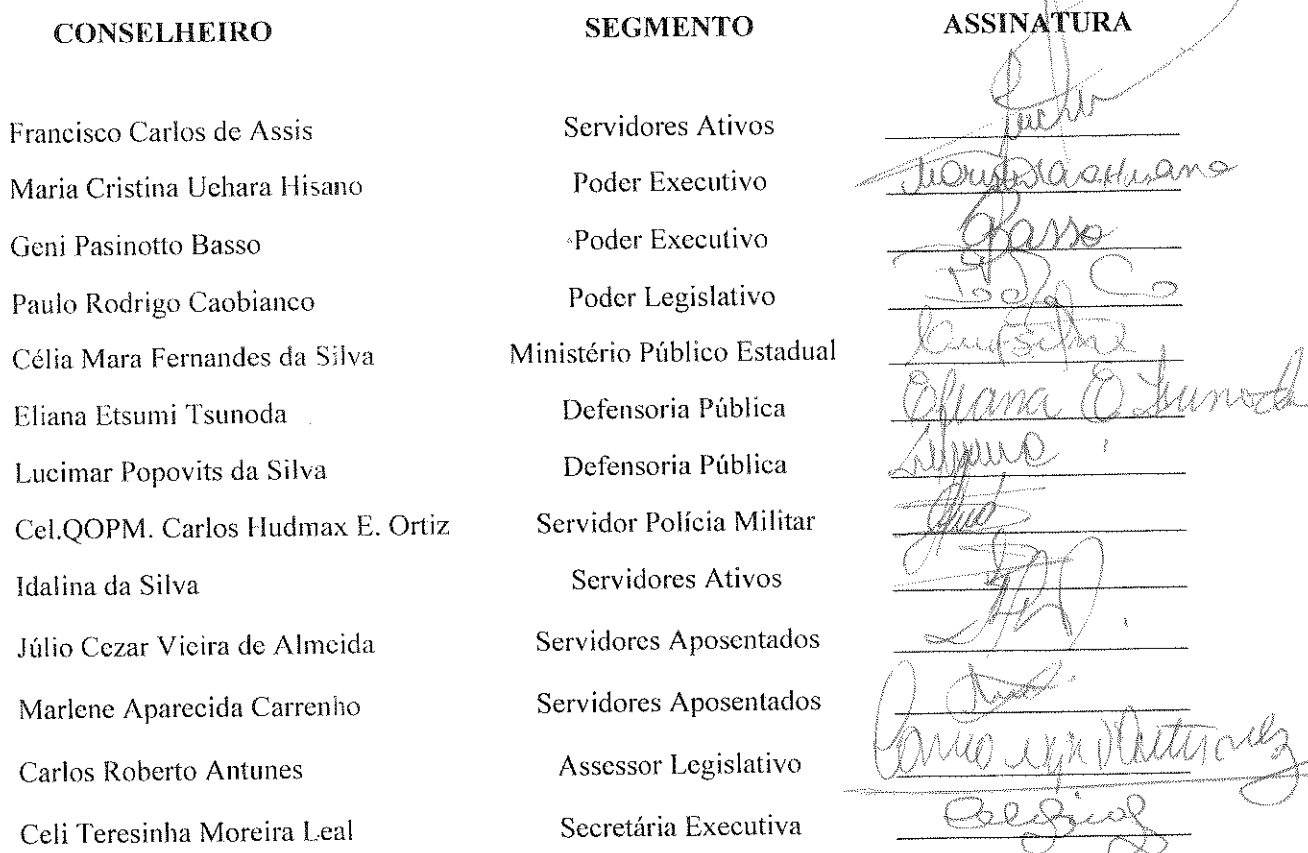 CONSELHEIRO SEGMENTO ASSINATURA
Francisco Carlos de Assis Servidores Ativos
Maria Cristina Uehara Hisano Poder Executivo
Geni Pasinotto Basso Poder Executivo Basso
Paulo Rodrigo Caobianco Poder Legislativo
Célia Mara Fernandes da Silva Ministério Público Estadual
Eliana Etsumi Tsunoda Defensoria Pública Eliana E. Tsunoda
Lucimar Popovits da Silva Defensoria Pública
Cel.QOPM. Carlos Hudmax E. Ortiz Servidor Polícia Militar
Idalina da Silva Servidores Ativos
Júlio Cezar Vieira de Almeida Servidores Aposentados
Marlene Aparecida Carrenho Servidores Aposentados
Carlos Roberto Antunes Assessor Legislativo
Celi Teresinha Moreira Leal Secretária Executiva